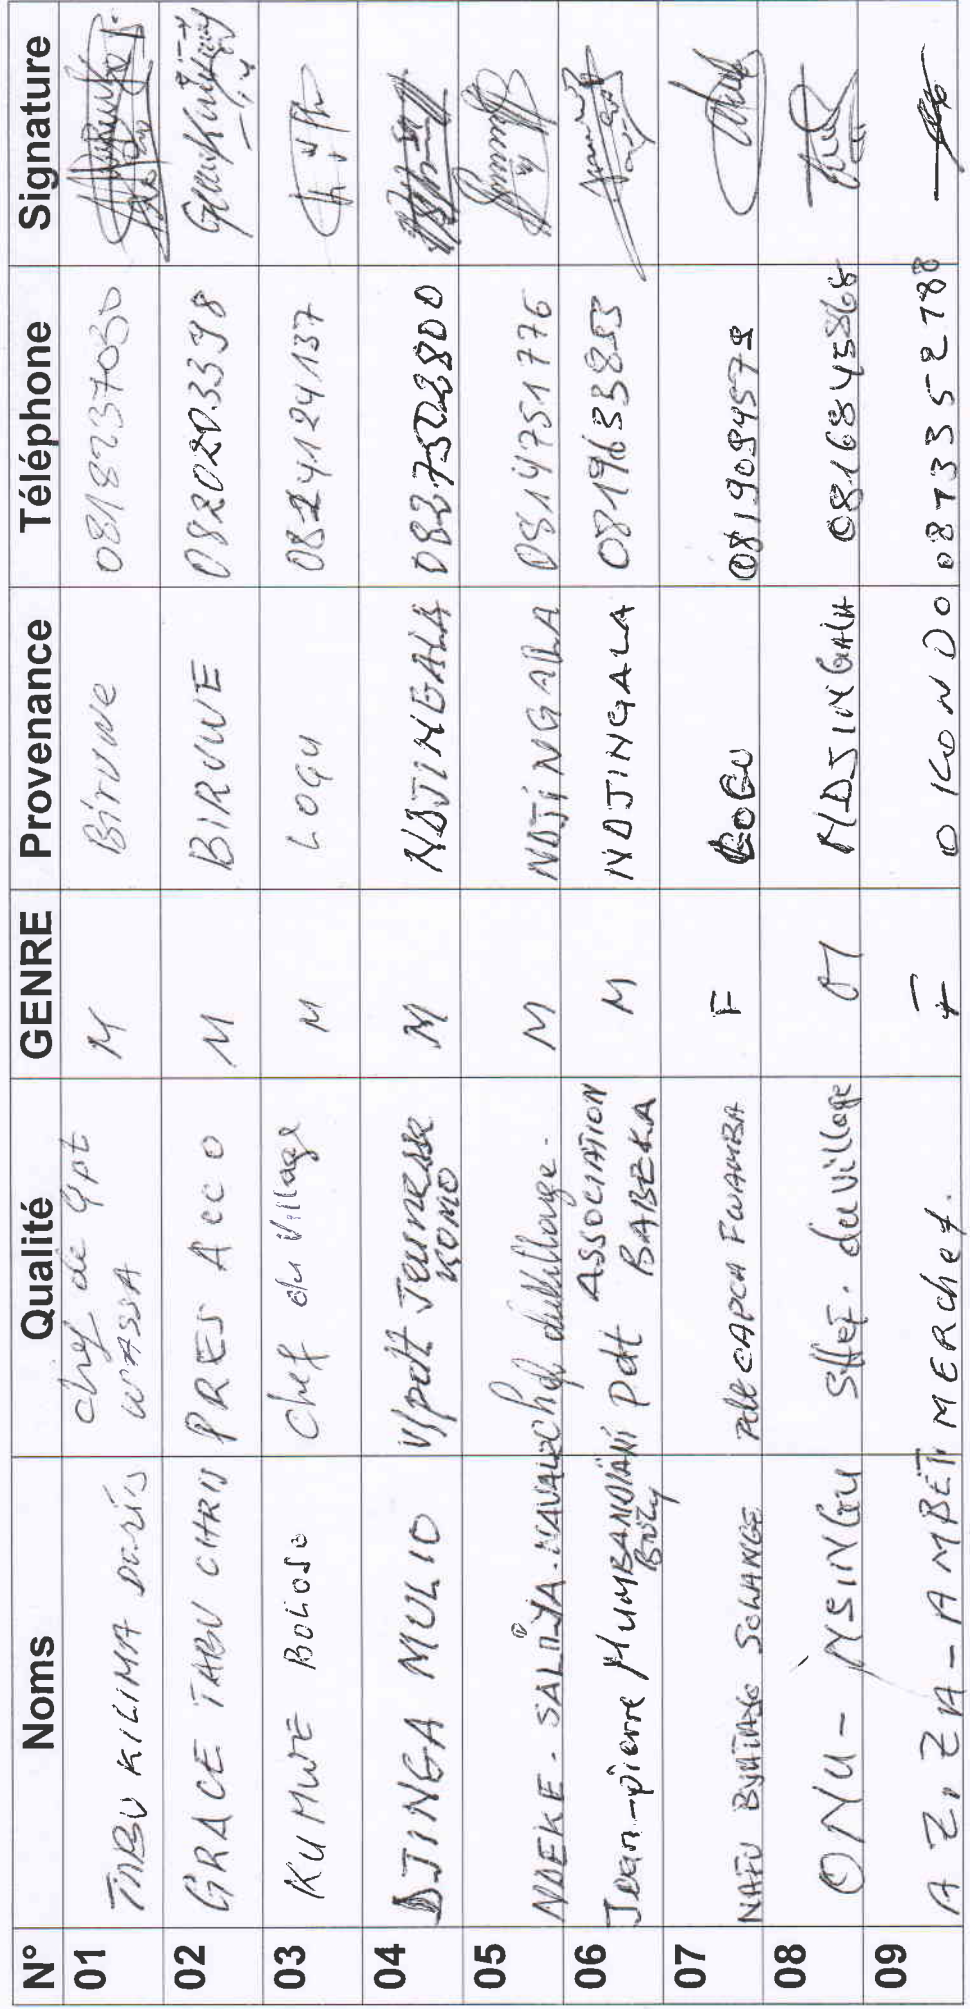 N° Noms Qualité GENRE Provenance Téléphone Signature
01 TABU KILIMA DENIS chef de Gpt WASSA M Biruwe 0818237030
02 GRACE TABU CHRIS PRES ACCO M BIRUWE 0820203398
03 KUMWE BOLIOSO Chef du Village M LOGU 0824124137
04 DJINGA MULIO V/pdt Jeunesse KOMO M NDJINGALA 0827523800
05 NDEKE-SALIYA-NAVALI Chef du village. M NDJINGALA 0814751776
06 Jean-pierre MUMBANDIANI Pdt ASSOCIATION BABEKA M NDJINGALA 0819633853
07 NAFU SOLANGE Pdte CAPCA FWAMBA F LOGU 0819094579
08 ONU-NSINGU du Village NDJINGALA 0816845868
09 AZIZA-AMBETI MERchef. F OKONDO 0813352788